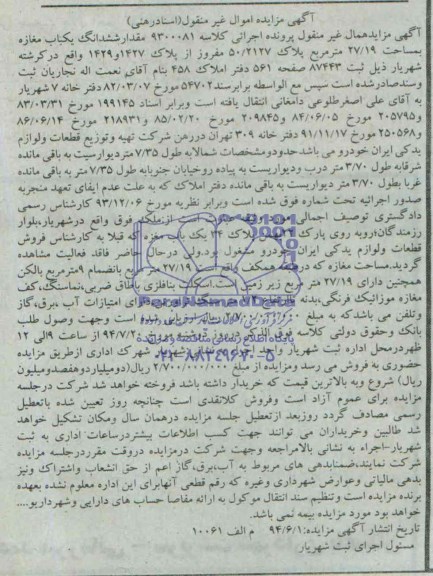 آگهی مزایده اموال غیر منقول(اسنادرهنی)
آگهی مزایدهمال غیر منقول پرونده اجرائی کلاسه ۹۳۰۰۰۸۱ مقدارششدانگ یکباب مغازه
بمساحت ۲۷/۱۹ مترمربع پلاک ۵۰/۲۱۲۷ مفروز از پلاک ۱۴۲۷و۱۴۲۹ واقع درکرشته
شهریار ذیل ثبت ۸۷۴۴۳ صفحه ۵۶۱ دفتر املاک ۴۵۸ بنام آقای نعمت اله نجاریان ثبت
وسندصادرشده است سپس مع الواسطه برابرسند۵۴۷۰۲مورخ ۸۲/۰۳/۰۷ دفتر خانه ۷ شهریار
به آقای علی اصغرطلوعی دامغانی انتقال یافته است وبرابر اسناد ۱۹۹۱۴۵ مورخ ۸۳/۰۳/۳۱
و۲۰۵۷۹۵ مورخ ۸۴/۰۶/۰۵ و۲۰۹۸۴۵ مورخ ۸۵/۰۲/۲۰ و۲۱۸۹۳۱ مورخ ۸۶/۰۶/۱۴
و۲۵۰۵۶۸ مورخ ۹۱/۱۱/۱۷ دفتر خانه ۳۰۹ تهران دررهن شرکت تهیه وتوزیع قطعات ولوازم
یدکی ایران خودرو می باشدحدودومشخصات شمالابه طول ۷/۳۵متردیوارست به باقی مانده
شرقابه طول ۳/۷۰ متر درب ودیواریست به پیاده روخیابان جنوبابه طول ۷/۳۵متر به باقی مانده
غربا بطول ۳/۷۰ متر دیواریست به باقی مانده دفتر املاک که به علت عدم ایفای تعهد منجربه
صدور اجرائیه تحت شماره فوق شده است وبرابر نظریه مورخ ۹۳/۱۲/۰۶ کارشناس رسمی
دادگستری توصیف اجمالی مورد ازملک فوق واقع درشهریار،بلوار
رزمندگان،روبه روی پارک پلاک ۳۴ یک باب مغازه که قبلا به کارشناس فروش
قطعات ولوازم یدکی ایران خودرو مشغول بود.ولی درحال حاضر فاقد فعالیت مشاهده
گردید.مساحت مغازه که در طبقه همکف ۲۷/۱۹ بانضمام ۹مترمربع بالکن
همچنین دارای ۲۷/۱۹ متر مربع زیر زمین است. نبافلزی باطاق ضربی،نماسنگ،کف
مغازه موزائیک فرنگی،بدنه دارای امتیازات آب ،برق،گاز
وتلفن می باشدکه به مبلغ ریال ارزیابی شده است وجهت وصول طلب
بانک وحقوق دولتی کلاسه فوق الذکر ۹۴/۷/۲ از ساعت ۹الی ۱۲
ظهردرمحل اداره ثبت شهریار واحد اجرا شهریار شهرک اداری ازطریق مزایده
حضوری به فروش می رسد ومزایده از مبلغ ۲/۷۰۰/۰۰۰/۰۰۰ ریال(دومیلیاردوهفصدومیلیون
ریال) شروع وبه بالاترین قیمت که خریدار داشته باشد فروخته خواهد شد شرکت درجلسه
مزایده برای عموم آزاد است وفروش کلانقدی است چنانچه روز تعیین شده باتعطیل
رسمی مصادف گردد روزبعد ازتعطیل جلسه مزایده درهمان سال ومکان تشکیل خواهد
شد طالبین وخریداران می توانند جهت کسب اطلاعات بیشتردرساعات اداری به ثبت
شهریار-اجراء به نشانی بالامراجعه وجهت شرکت درمزایده دروقت مقرردرجلسه مزایده
شرکت نمایند،ضمنابدهی های مربوط به آب،برق،گاز اعم از حق انشعاب واشتراک ونیز
بدهی مالیاتی وعوارض شهرداری وغیره که رقم قطعی آنهابرای این اداره معلوم نشده بعهده
برنده مزایده است وتنظیم سند انتقال موکول به ارائه مفاصا حساب های دارایی وشهرداریو....
خواهد بود مورد مزایده بیمه نمی باشد.
تاریخ انتشار آگهی مزایده:۹۴/۶/۱ م الف ۱۰۰۶۱
مسئول اجرای ثبت شهریار